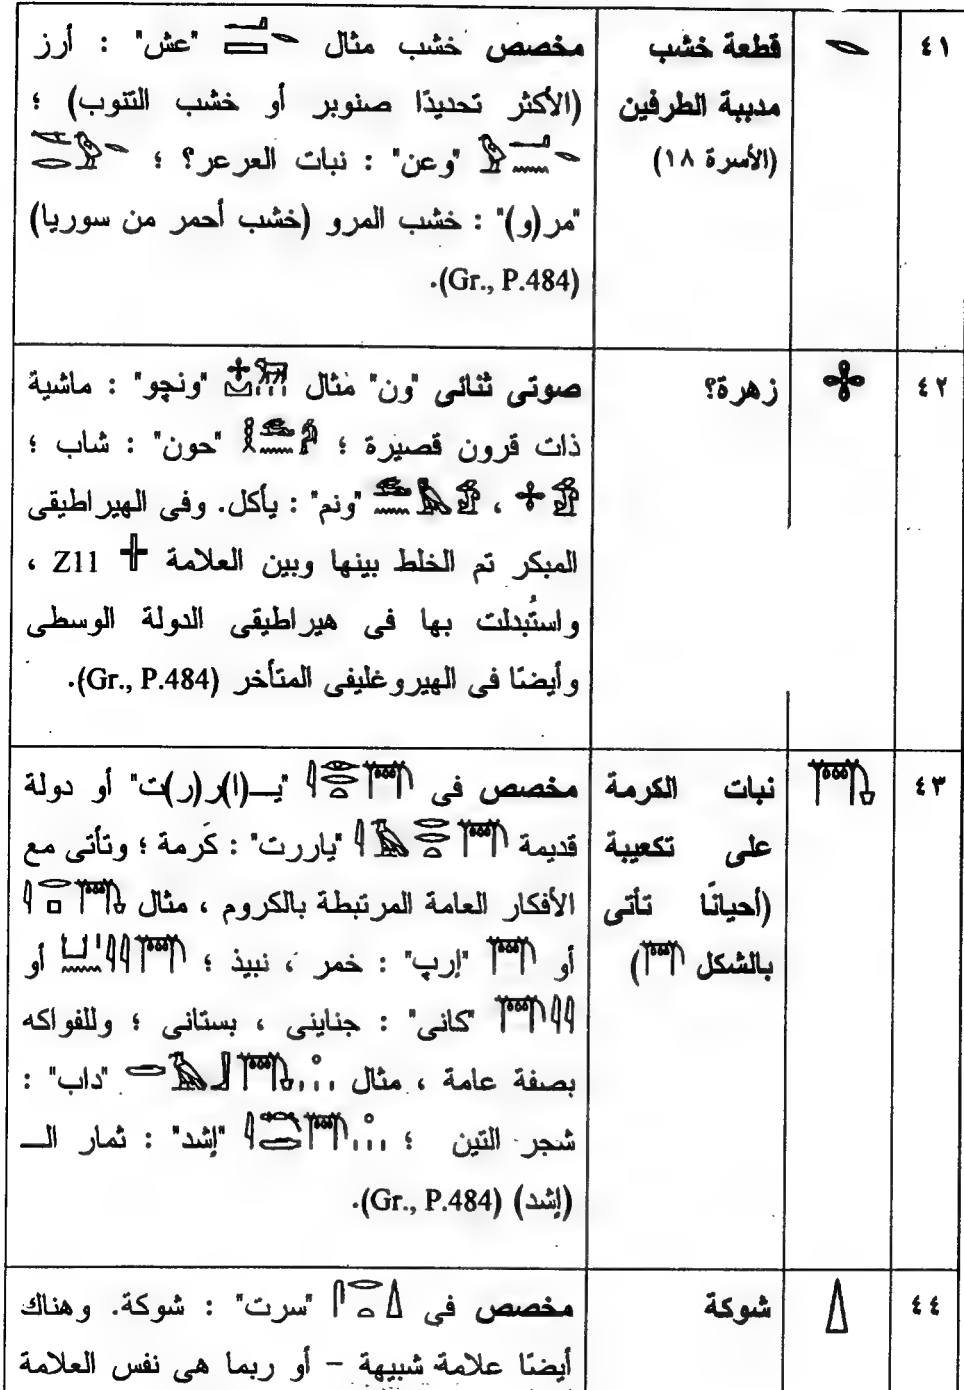 ٤١ 𓆱 قطعة خشب مخصص خشب مثال "عش" : أرز
مدببة الطرفين (الأكثر تحديدًا صنوبر أو خشب التنوب) ؛
(الأسرة ١٨) "وعن" : نبات العرعر؟ ؛
"مر(و)" : خشب المرو (خشب أحمر من سوريا)
(Gr., P.484).
٤٢ 𓇬 زهرة؟ صوتى ثنائى "ون" مثال "ونچو" : ماشية
ذات قرون قصيرة ؛ "حون" : شاب ؛
، "ونم" : يأكل. وفى الهيراطيقى
المبكر تم الخلط بينها وبين العلامة Z11 ،
واستُبدلت بها فى هيراطيقى الدولة الوسطى
وأيضًا فى الهيروغليفى المتأخر (Gr., P.484).
٤٣ نبات الكرمة مخصص فى "يـــ(ا)ر(ر)ت" أو دولة
على تكعيبة قديمة "ياررت" : كَرمة ؛ وتأتى مع
(أحيانًا تأتى الأفكار العامة المرتبطة بالكروم ، مثال
بالشكل ) أو "إرپ" : خمر ، نبيذ ؛ أو
"كانى" : جناينى ، بستانى ؛ وللفواكه
بصفة عامة ، مثال "داب" :
شجر التين ؛ "إشد" : ثمار الـــ
(إشد) (Gr., P.484).
٤٤ شوكة مخصص فى "سرت" : شوكة. وهناك
أيضًا علامة شبيهة – أو ربما هى نفس العلامة